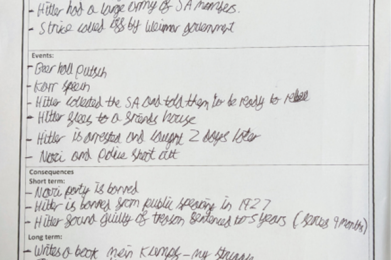 - Hitler had a large army of SA members.
- Strike called off by Weimar government
Events:
- Beer hall putsch
- Kahr speech
- Hitler collected the SA and told them to be ready to rebel
- Hitler flees to a friends house
- Hitler is arrested and caught 2 days later
- Nazi and Police shoot out
Consequences
Short term:
- Nazi party is banned
- Hitler is banned from public speaking in 1927
- Hitler found guilty of treason sentenced to 5 years (serves 9 months)
Long term:
- Writes a book mein Kampf - my struggle